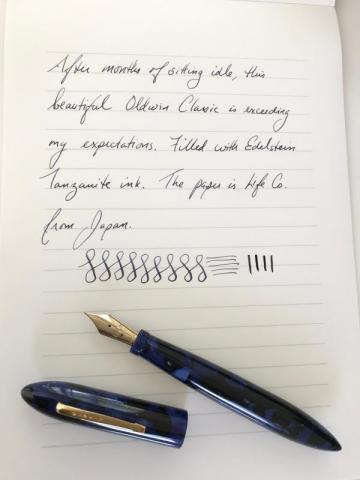 After months of sitting idle, this
beautiful Oldwin Classic is exceeding
my expectations. Filled with Edelstein
Tanzanite ink. The paper is Life Co.
from Japan.